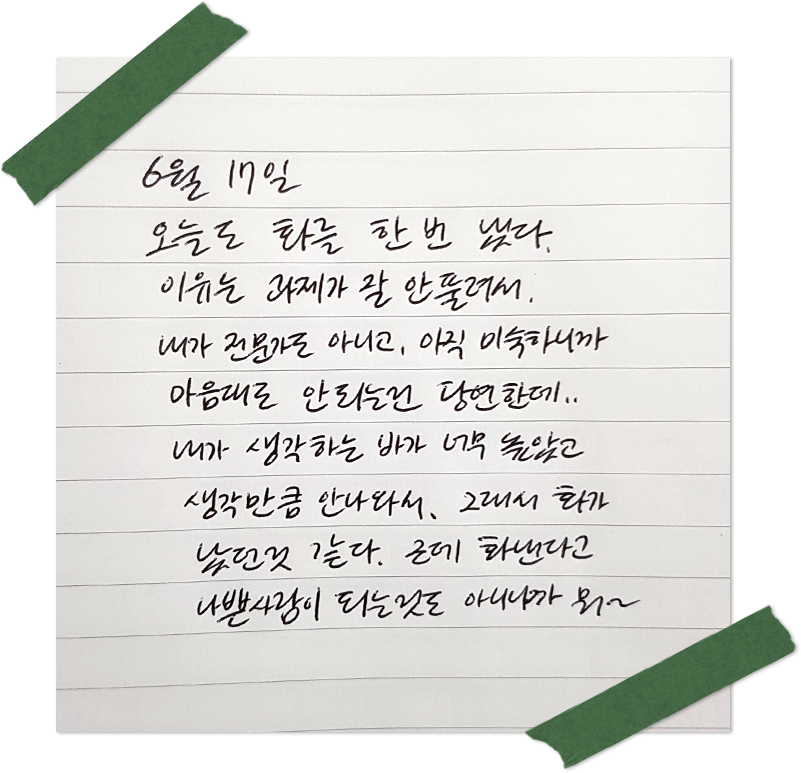 6월 17일
오늘도 화를 한 번 냈다.
이유는 과제가 잘 안풀려서.
내가 전문가도 아니고, 아직 미숙하니까
마음대로 안되는건 당연한데..
내가 생각하는 바가 너무 높았고
생각만큼 안나와서, 그래서 화가
났던것 같다. 근데 화낸다고
나쁜사람이 되는것도 아니니까 뭐~